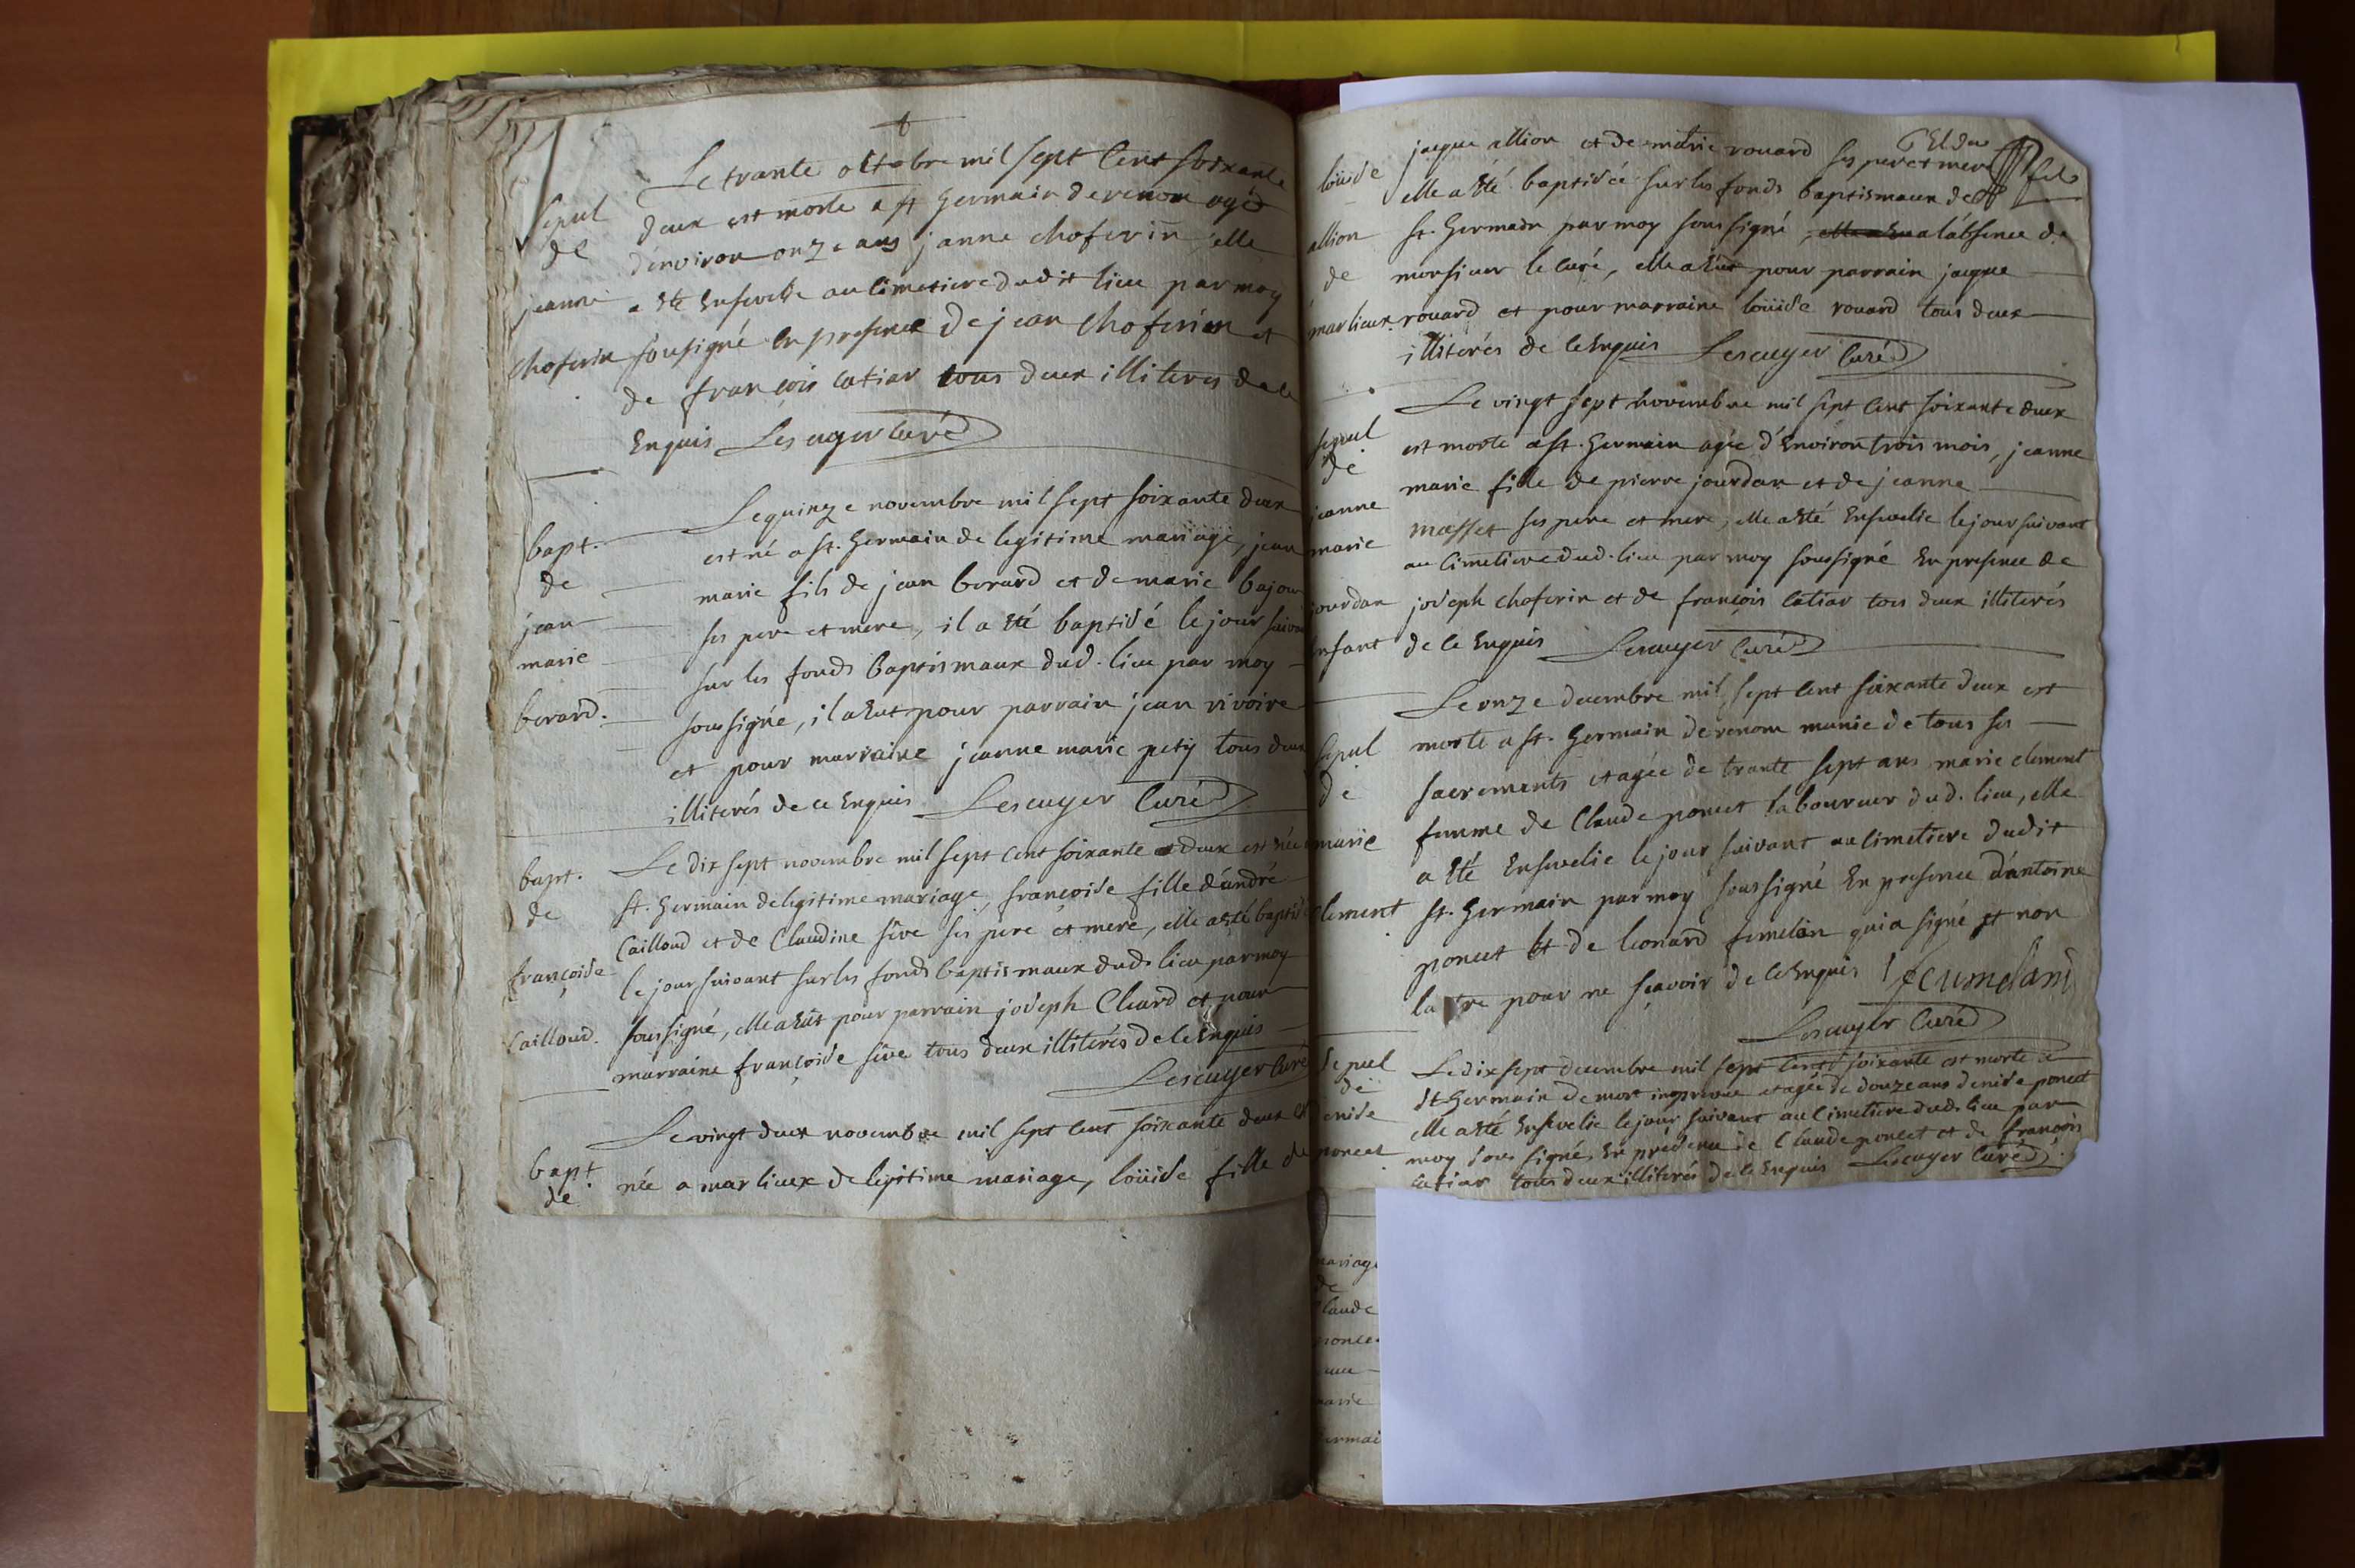 Sepul
de
jeanne
choferin
Le trante octobre mil sept cent soixante
deux est morte a st germain de renom agée
d'environ onze ans janne choferin elle
a eté ensevelie au cimetiere dudit lieu par moy
sousigné en presence de jean choferin et
de françois catiar tous deux illiteres de ce
enquis Lescuyer curé
bapt.
de
jean
marie
borard.
Le quinze novembre mil sept soixante deux
est né a st. germain de legitime mariage, jean
marie fils de jean borard et de marie bajou
ses pere et mere, il a eté baptisé le jour suivan
sur les fonds baptismaux dud. lieu par moy
soussigné, il a eut pour parrain jean rivoire
et pour marraine jeanne marie petij tous deux
illiterés de ce enquis Lescuyer curé
bapt.
de
françoise
Cailloud.
Le dix sept novembre mil sept cent soixante et deux est née a
st. germain de legitime mariage, françoise fille d'andré
Cailloud et de Claudine sive ses pere et mere, elle a eté baptisé
le jour suivant sur les fonds baptismaux dud. lieu par moy
soussigné, elle a eut pour parrain joseph Cleard et pour
marraine françoise sive tous deux illiterés de ce enquis
Lescuyer curé
bapt.
de
Le vingt deux novembre mil sept cent soixante deux est
née a marlieux de legitime mariage, loüise fille de
loüise
allion
de
marlieux.
jaque allion et de marie rouard ses pere et mere
elle a eté baptisée sur les fonds baptismaux de
st. germain par moy soussigné, a l'absence de
monsieur le curé, elle a eut pour parrain jaque
rouard et pour marraine loüise rouard tous deux
illiterés de ce enquis Lescuyer curé
sepul
de
jeanne
marie
jourdan
enfant
Le vingt sept novembre mil sept cent soixante deux
est morte a st. germain agée d'environ trois mois, jeanne
marie fille de pierre jourdan et de jeanne
masset ses pere et mere, elle a eté ensevelie le jour suivant
au cimetiere dud. lieu par moy soussigné en presence de
joseph choferin et de françois catiar tous deux illiterés
de ce enquis Lescuyer curé
Sepul
de
marie
Clement
Le onze decembre mil sept cent soixante deux est
morte a st. germain de renom munie de tous ses
sacrements et agée de trante sept ans marie clement
femme de Claude poncet laboureur dud. lieu, elle
a eté ensevelie le jour suivant au cimetiere dudit
st. germain par moy soussigné en presence d'antoine
poncet et de leonard fumelan qui a signé et non
lautre pour ne sçavoir de ce enquis l feumelam
Lescuyer curé
Sepul
de
denise
poncet
Le dix sept decembre mil sept cent soixante est morte a
st germain de mort imprevue et agée de douze ans denise poncet
elle a eté ensevelie le jour suivant au cimetiere dud. lieu par
moy sous signé, en presence de Claude poncet et de françois
catiar tous deux illiterés de ce enquis Lescuyer curé
mariage
de
Claude
poncet
marie
germai